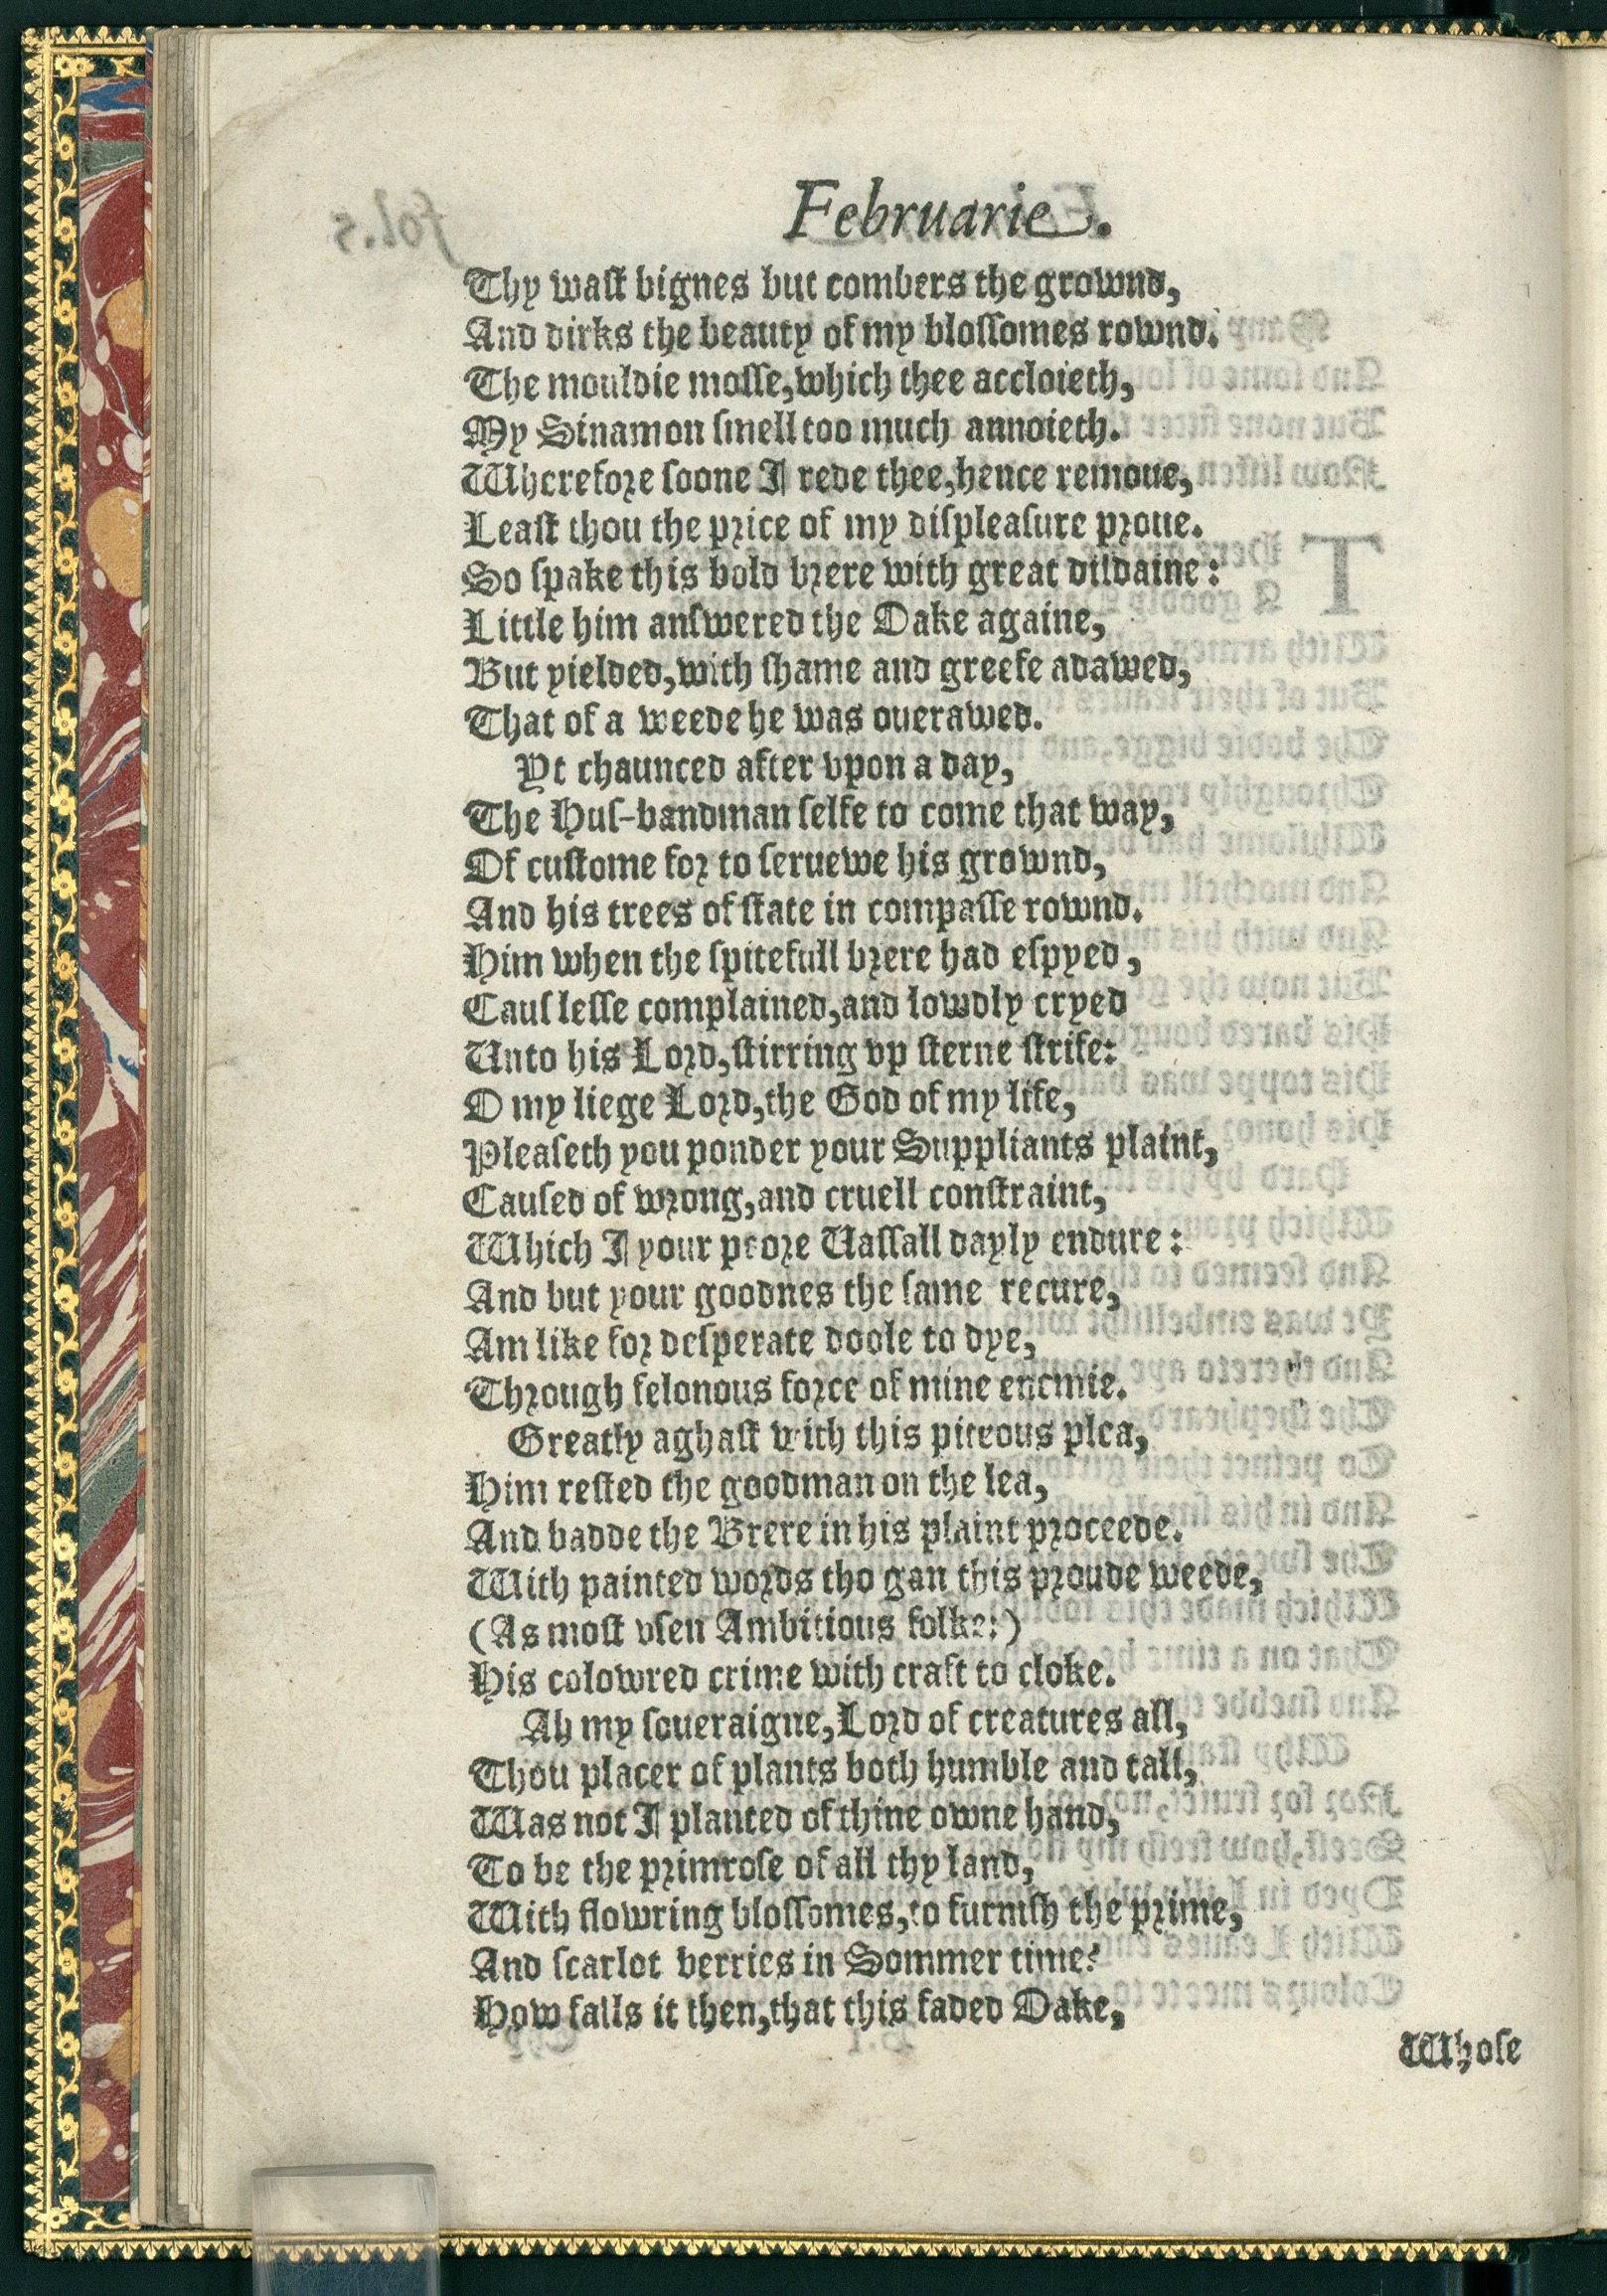 Februarie.
Thy waſt bignes but combers the grownd,
And dirks the beauty of my bloſſomes rownd.
The mouldie moſſe,which thee accloieth,
My Sinamon ſmell too much annoieth.
Wherefore ſoone I rede thee,hence remoue,
Leaſt thou the price of my diſpleaſure proue.
So ſpake this bold brere with great diſdaine:
Little him anſwered the Oake againe,
But yielded,with ſhame and greefe adawed,
That of a weede he was ouerawed.
Yt chaunced after vpon a day,
The Huſ-bandman ſelfe to come that way,
Of cuſtome for to ſeruewe his grownd,
And his trees of ſtate in compaſſe rownd.
Him when the ſpitefull brere had eſpyed,
Cauſleſſe complained,and lowdly cryed
Unto his Lord,ſtirring vp ſterne ſtrife:
O my liege Lord,the God of my life,
Pleaſeth you ponder your Suppliants plaint,
Cauſed of wrong,and cruell conſtraint,
Which I your poore Uaſſall dayly endure:
And but your goodnes the ſame recure,
Am like for deſperate doole to dye,
Through felonous force of mine enemie.
Greatly aghaſt with this piteous plea,
Him reſted the goodman on the lea,
And badde the Brere in his plaint proceede.
With painted words tho gan this proude weede,
(As moſt vſen Ambitious folke:)
His colowred crime with craft to cloke.
Ah my ſoueraigne,Lord of creatures all,
Thou placer of plants both humble and tall,
Was not I planted of thine owne hand,
To be the primroſe of all thy land,
With flowring bloſſomes,to furniſh the prime,
And ſcarlot berries in Sommer time?
How falls it then,that this faded Oake,
Whoſe